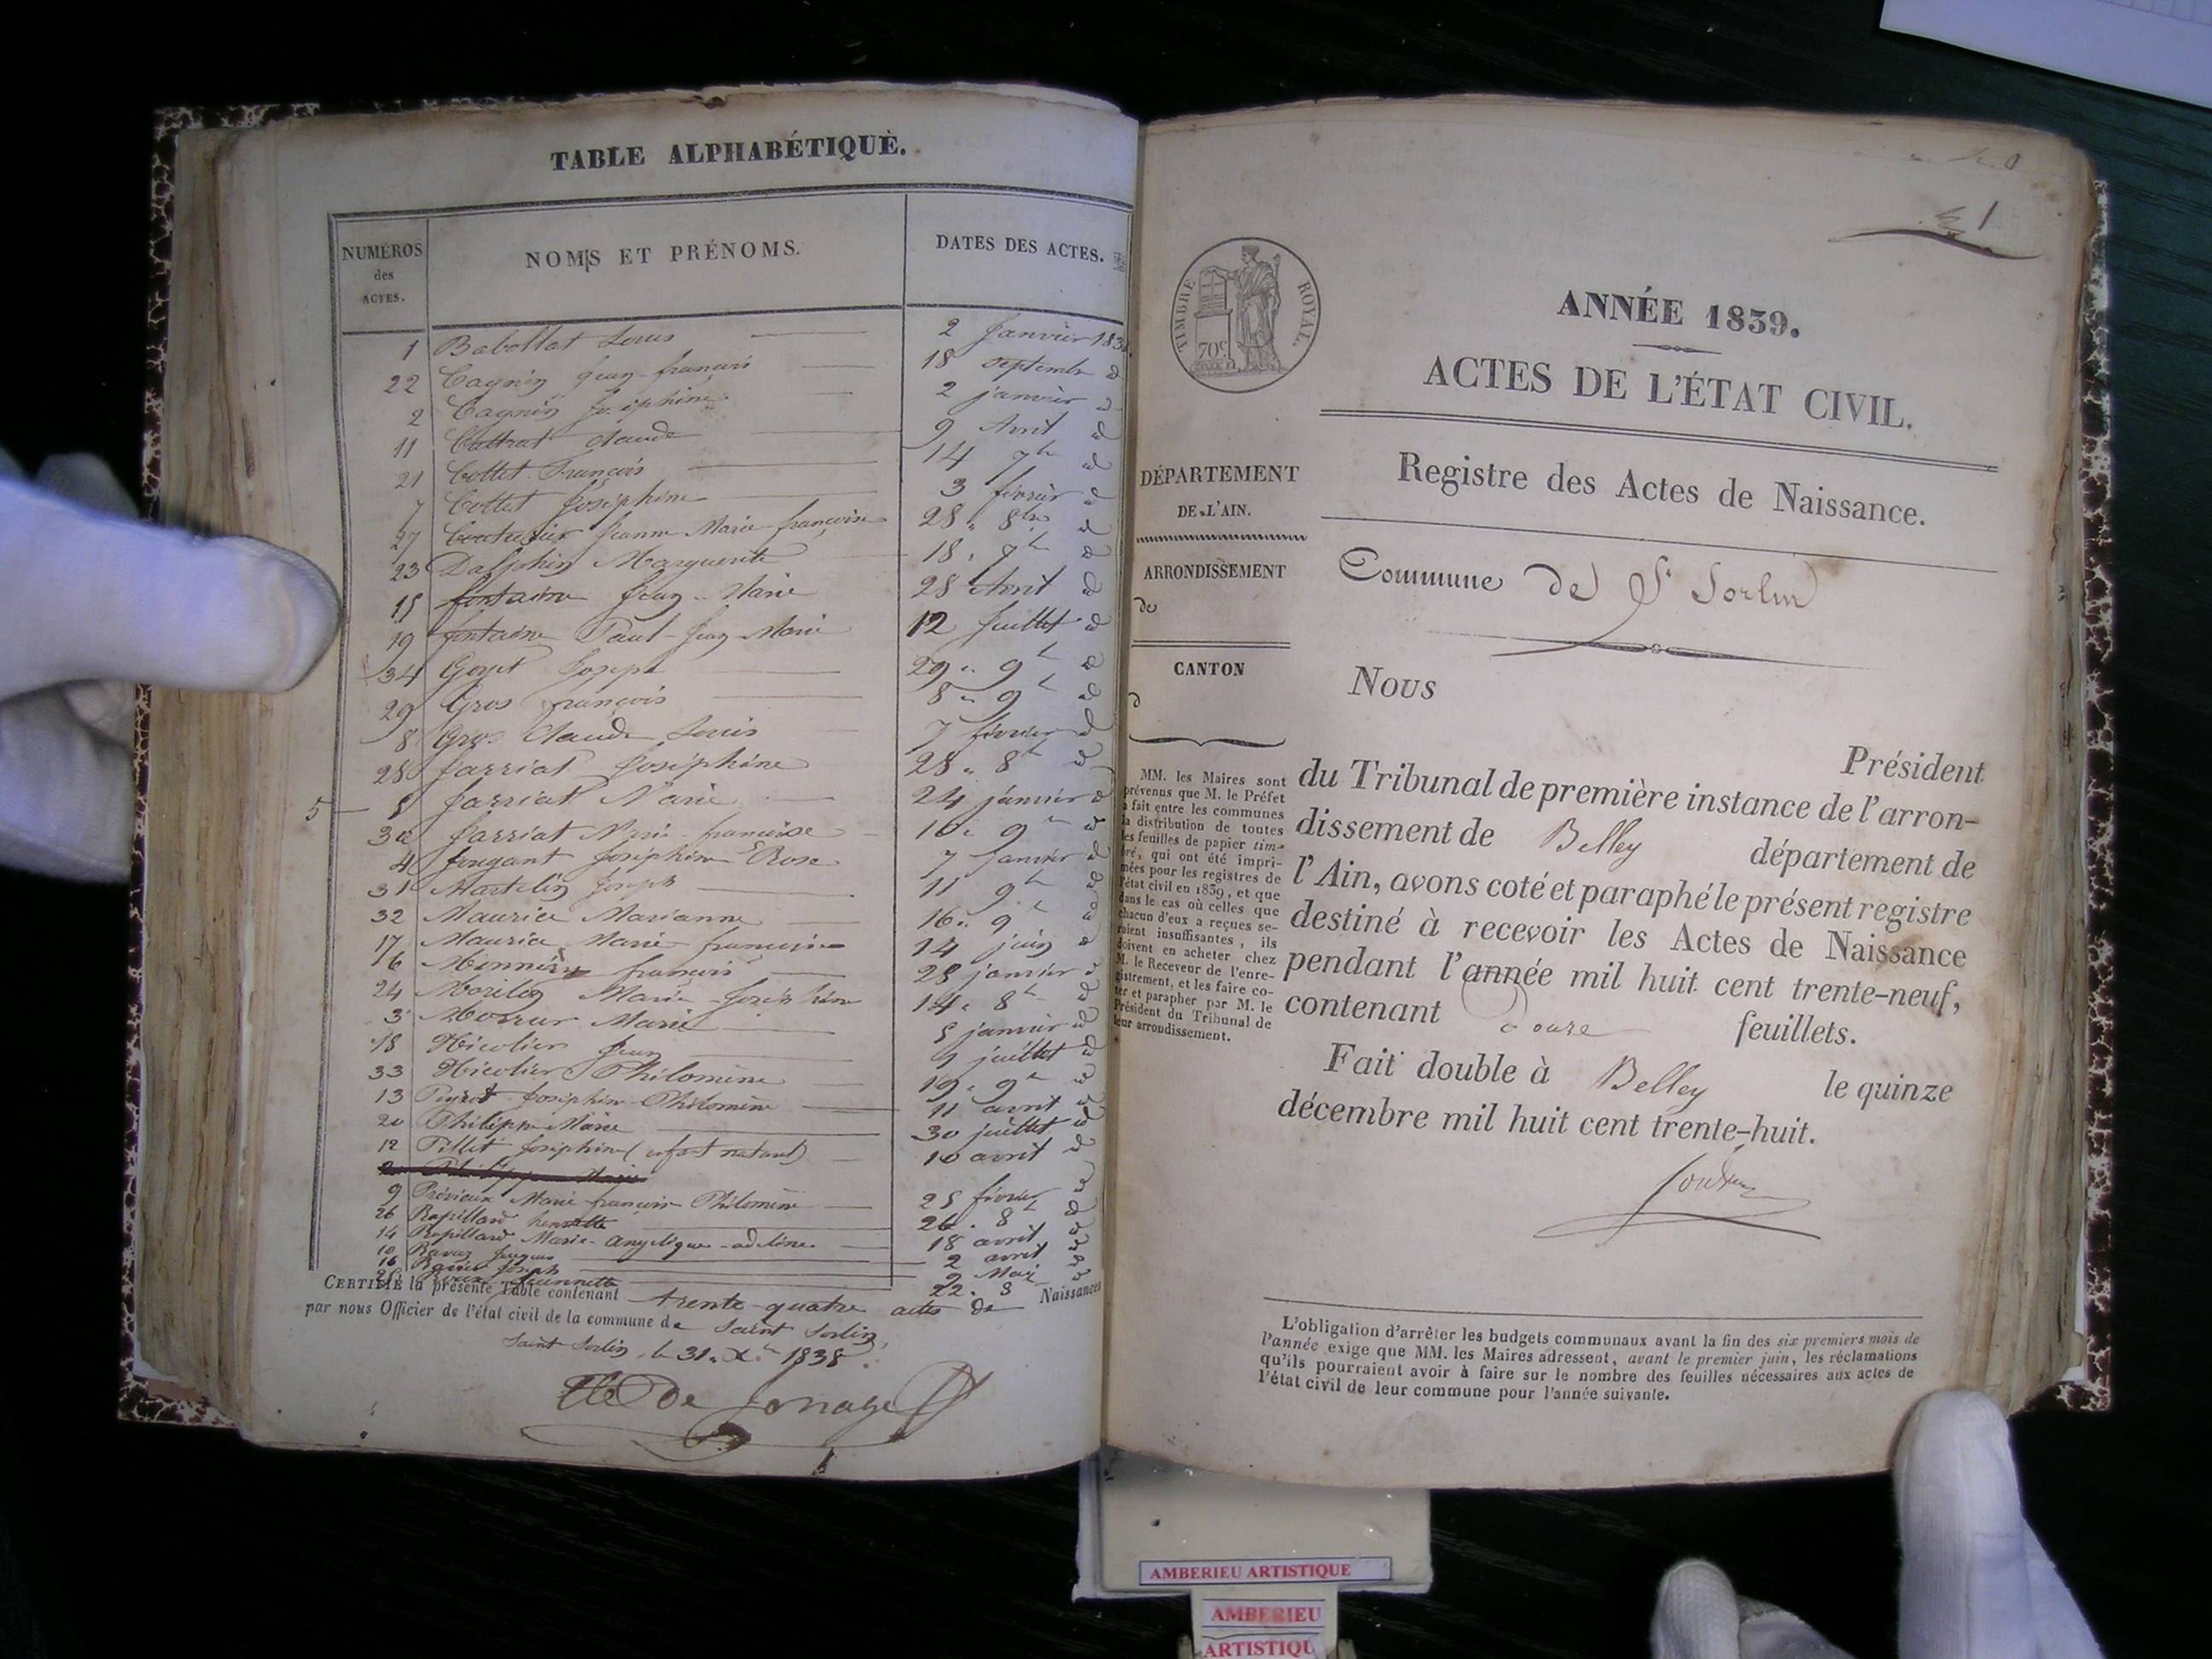 TABLE ALPHABÉTIQUE.
NUMÉROS
des
ACTES.
NOMS ET PRÉNOMS.
DATES DES ACTES.
1 Babollat Louis 2 Janvier 183
22 Cagnin Jean-françois 18 septembre id
2 Cagnin Joséphine 2 janvier id
11 Cottrat Claude 9 Avril id
21 Cottet François 14 7bre id
7 Cottet Joséphine 3 février id
27 Jeanne Marie françoise 28 8bre id
23 Dalphin Marguerite 18 7bre id
15 fontaine Jean-Marie 28 Avril id
19 fontaine Paul-Jean-Marie 12 Juillet id
34 Goyet Joseph 29 9bre id
29 Gros françois 8 9bre id
8 Gros Claude Louis 7 février id
28 Jarriat Joséphine 28 8bre id
5 Jarriat Marie 24 janvier id
30 Jarriat Marie-françoise 10 9bre id
4 Joséphine Rose 7 janvier id
31 Martelin Joseph 11 9bre id
32 Maurice Marianne 16 9bre id
17 Maurice Marie françoise 14 juin id
6 françois 28 janvier id
24 Marie-Joséphine 14 8bre id
3 Marie 5 janvier id
18 Nicolier Jean juillet id
33 Nicolier Philomène 19 9bre id
13 Joséphine Philomène 11 avril id
20 Philippe Marie 30 juillet id
12 Pillit Joséphine (enfant naturel) 10 avril id
9 Marie françoise Philomène 25 février id
26 Rapillard henriette 26 8bre id
14 Rapillard Marie-angélique-adeline 18 avril id
10 Ravaz 2 avril id
16 Joseph 9 Mai id
Roux Jeannette 22 8
CERTIFIÉ la présente Table contenant trente-quatre actes de Naissances
par nous Officier de l'état civil de la commune de Saint Sorlin
Saint Sorlin, le 31 Xbre 1838.
1
TIMBRE ROYAL
70c
ANNÉE 1839.
ACTES DE L'ÉTAT CIVIL.
Registre des Actes de Naissance.
DÉPARTEMENT
DE L'AIN.
ARRONDISSEMENT
de
CANTON
d
Commune de St Sorlin
Nous
Président
du Tribunal de première instance de l'arron-
dissement de Belley département de
l'Ain, avons coté et paraphé le présent registre
destiné à recevoir les Actes de Naissance
pendant l'année mil huit cent trente-neuf,
contenant Douze feuillets.
Fait double à Belley le quinze
décembre mil huit cent trente-huit.
MM. les Maires sont
prévenus que M. le Préfet
a fait entre les communes
la distribution de toutes
les feuilles de papier tim-
bré, qui ont été impri-
mées pour les registres de
l'état civil en 1839, et que
dans le cas où celles que
chacun d'eux a reçues se-
raient insuffisantes, ils
doivent en acheter chez
M. le Receveur de l'enre-
gistrement, et les faire co-
ter et parapher par M. le
Président du Tribunal de
leur arrondissement.
L'obligation d'arrêter les budgets communaux avant la fin des six premiers mois de
l'année exige que MM. les Maires adressent, avant le premier juin, les réclamations
qu'ils pourraient avoir à faire sur le nombre des feuilles nécessaires aux actes de
l'état civil de leur commune pour l'année suivante.
AMBERIEU ARTISTIQUE
AMBERIEU
ARTISTIQU